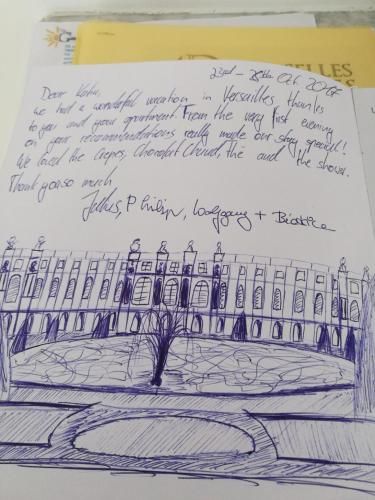 ELLES
23rd - 28th Oct. 2017
Dear Katia,
we had a wonderful vacation in Versailles, thanks
to you and your apartment. From the very first evening
on your recommendations really made our stay special!
We loved the Crepes, Chocolat Chaud, the and the shows.
Thank you so much
Julius, Philipp, Wolfgang + Beatrice